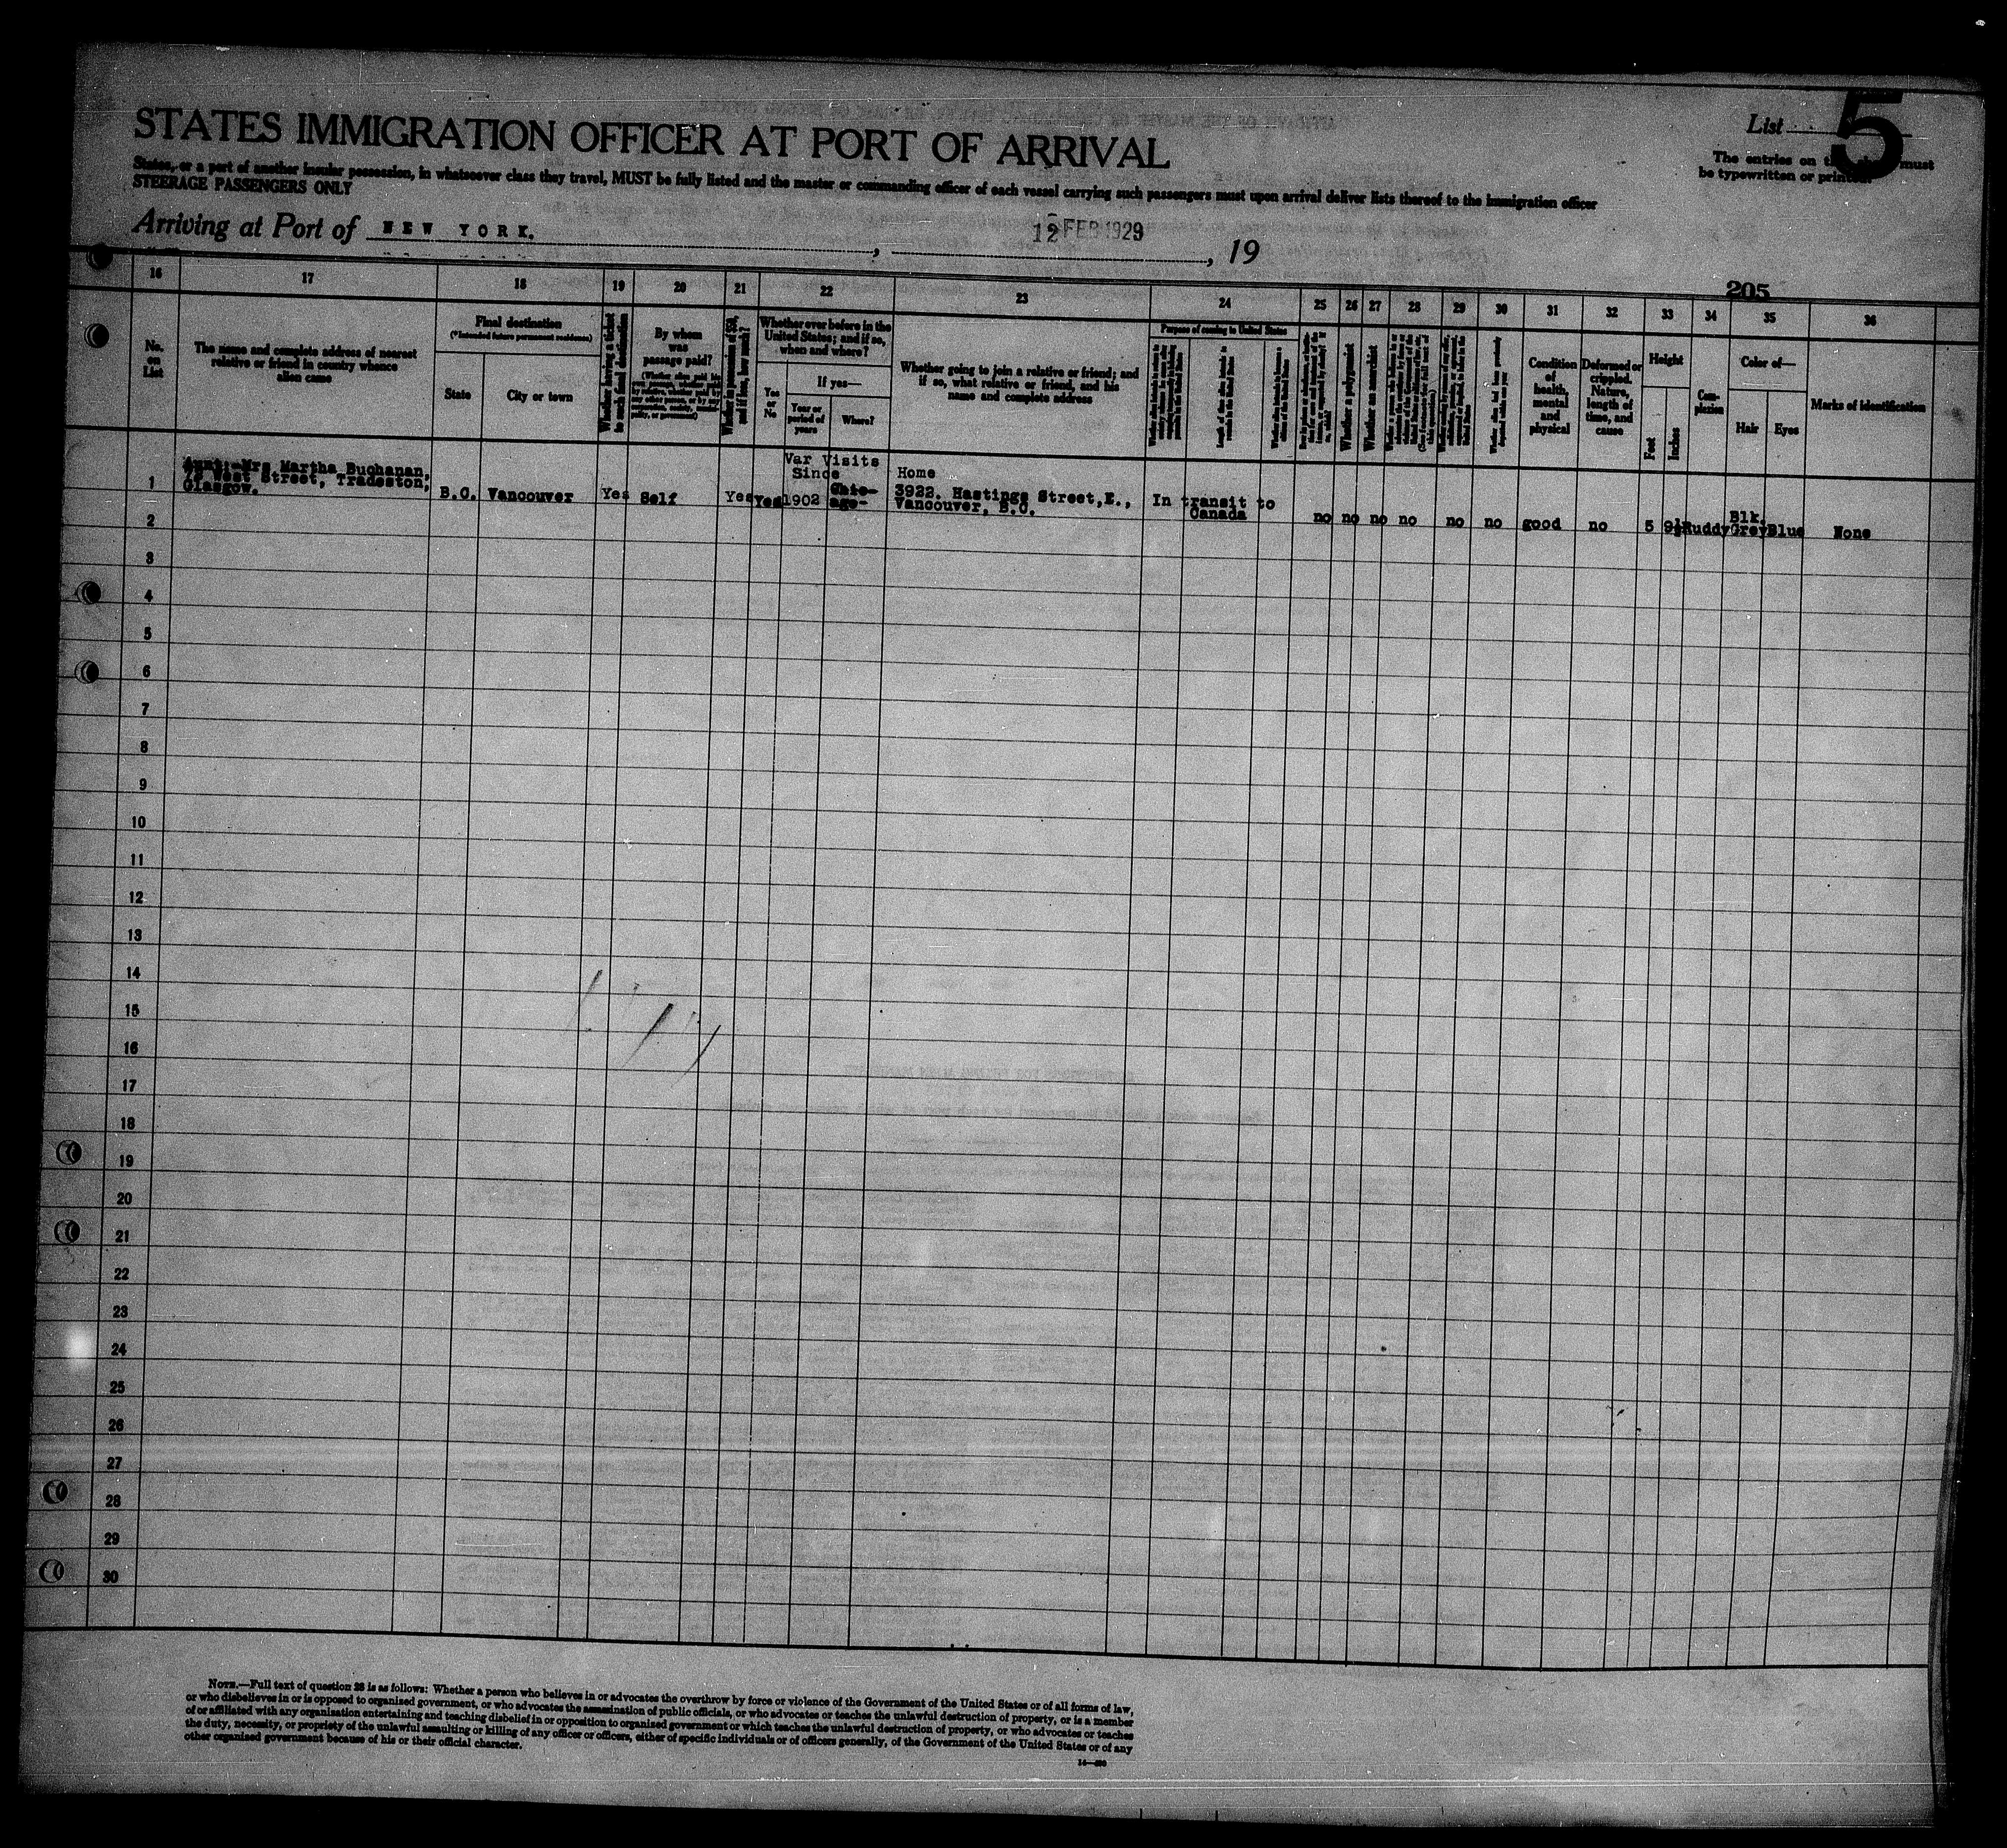 STATES IMMIGRATION OFFICER AT PORT OF ARRIVAL
List 5
The entries on must
be typewritten or printed.
States, or a part of another insular possession, in whatsoever class they travel, MUST be fully listed and the master or commanding officer of each vessel carrying such passengers must upon arrival deliver lists thereof to the immigration officer
STEERAGE PASSENGERS ONLY
Arriving at Port of NEW YORK. , 12 FEB 1929 , 19
205
16 17 18 19 20 21 22 23 24 25 26 27 28 29 30 31 32 33 34 35 36
No.
on
List
The name and complete address of nearest
relative or friend in country whence
alien came
Final destination
(*Intended future permanent residence)
State
City or town
Whether having a ticket
to such final destination
By whom
was
passage paid?
Whether in possession of $50,
and if less, how much?
Whether ever before in the
United States; and if so,
when and where?
Yes
or
No
If yes—
Year or
period of
years
Where?
Whether going to join a relative or friend; and
if so, what relative or friend, and his
name and complete address
Purpose of coming to United States
Whether a polygamist
Whether an anarchist
Condition
of
health,
mental
and
physical
Deformed or
crippled.
Nature,
length of
time, and
cause
Height
Feet
Inches
Com-
plexion
Color of—
Hair
Eyes
Marks of identification
1
Aunt:-Mrs Martha Buchanan,
West Street, Tradeston,
Glasgow.
B.C. Vancouver Yes Self Yes Yes
Var Visits
Since
1902
Chic-
ago-
Home
3922. Hastings Street,E.,
Vancouver, B.C.
In transit to
Canada
no no no no no no good no 5 9½ Ruddy
Blk.
Grey
Blue None
2
3
4
5
6
7
8
9
10
11
12
13
14
15
16
17
18
19
20
21
22
23
24
25
26
27
28
29
30
NOTE.—Full text of question 28 is as follows: Whether a person who believes in or advocates the overthrow by force or violence of the Government of the United States or of all forms of law,
or who disbelieves in or is opposed to organized government, or who advocates the assassination of public officials, or who advocates or teaches the unlawful destruction of property, or is a member
of or affiliated with any organization entertaining and teaching disbelief in or opposition to organized government or which teaches the unlawful destruction of property, or who advocates or teaches
the duty, necessity, or propriety of the unlawful assaulting or killing of any officer or officers, either of specific individuals or of officers generally, of the Government of the United States or of any
other organized government because of his or their official character.